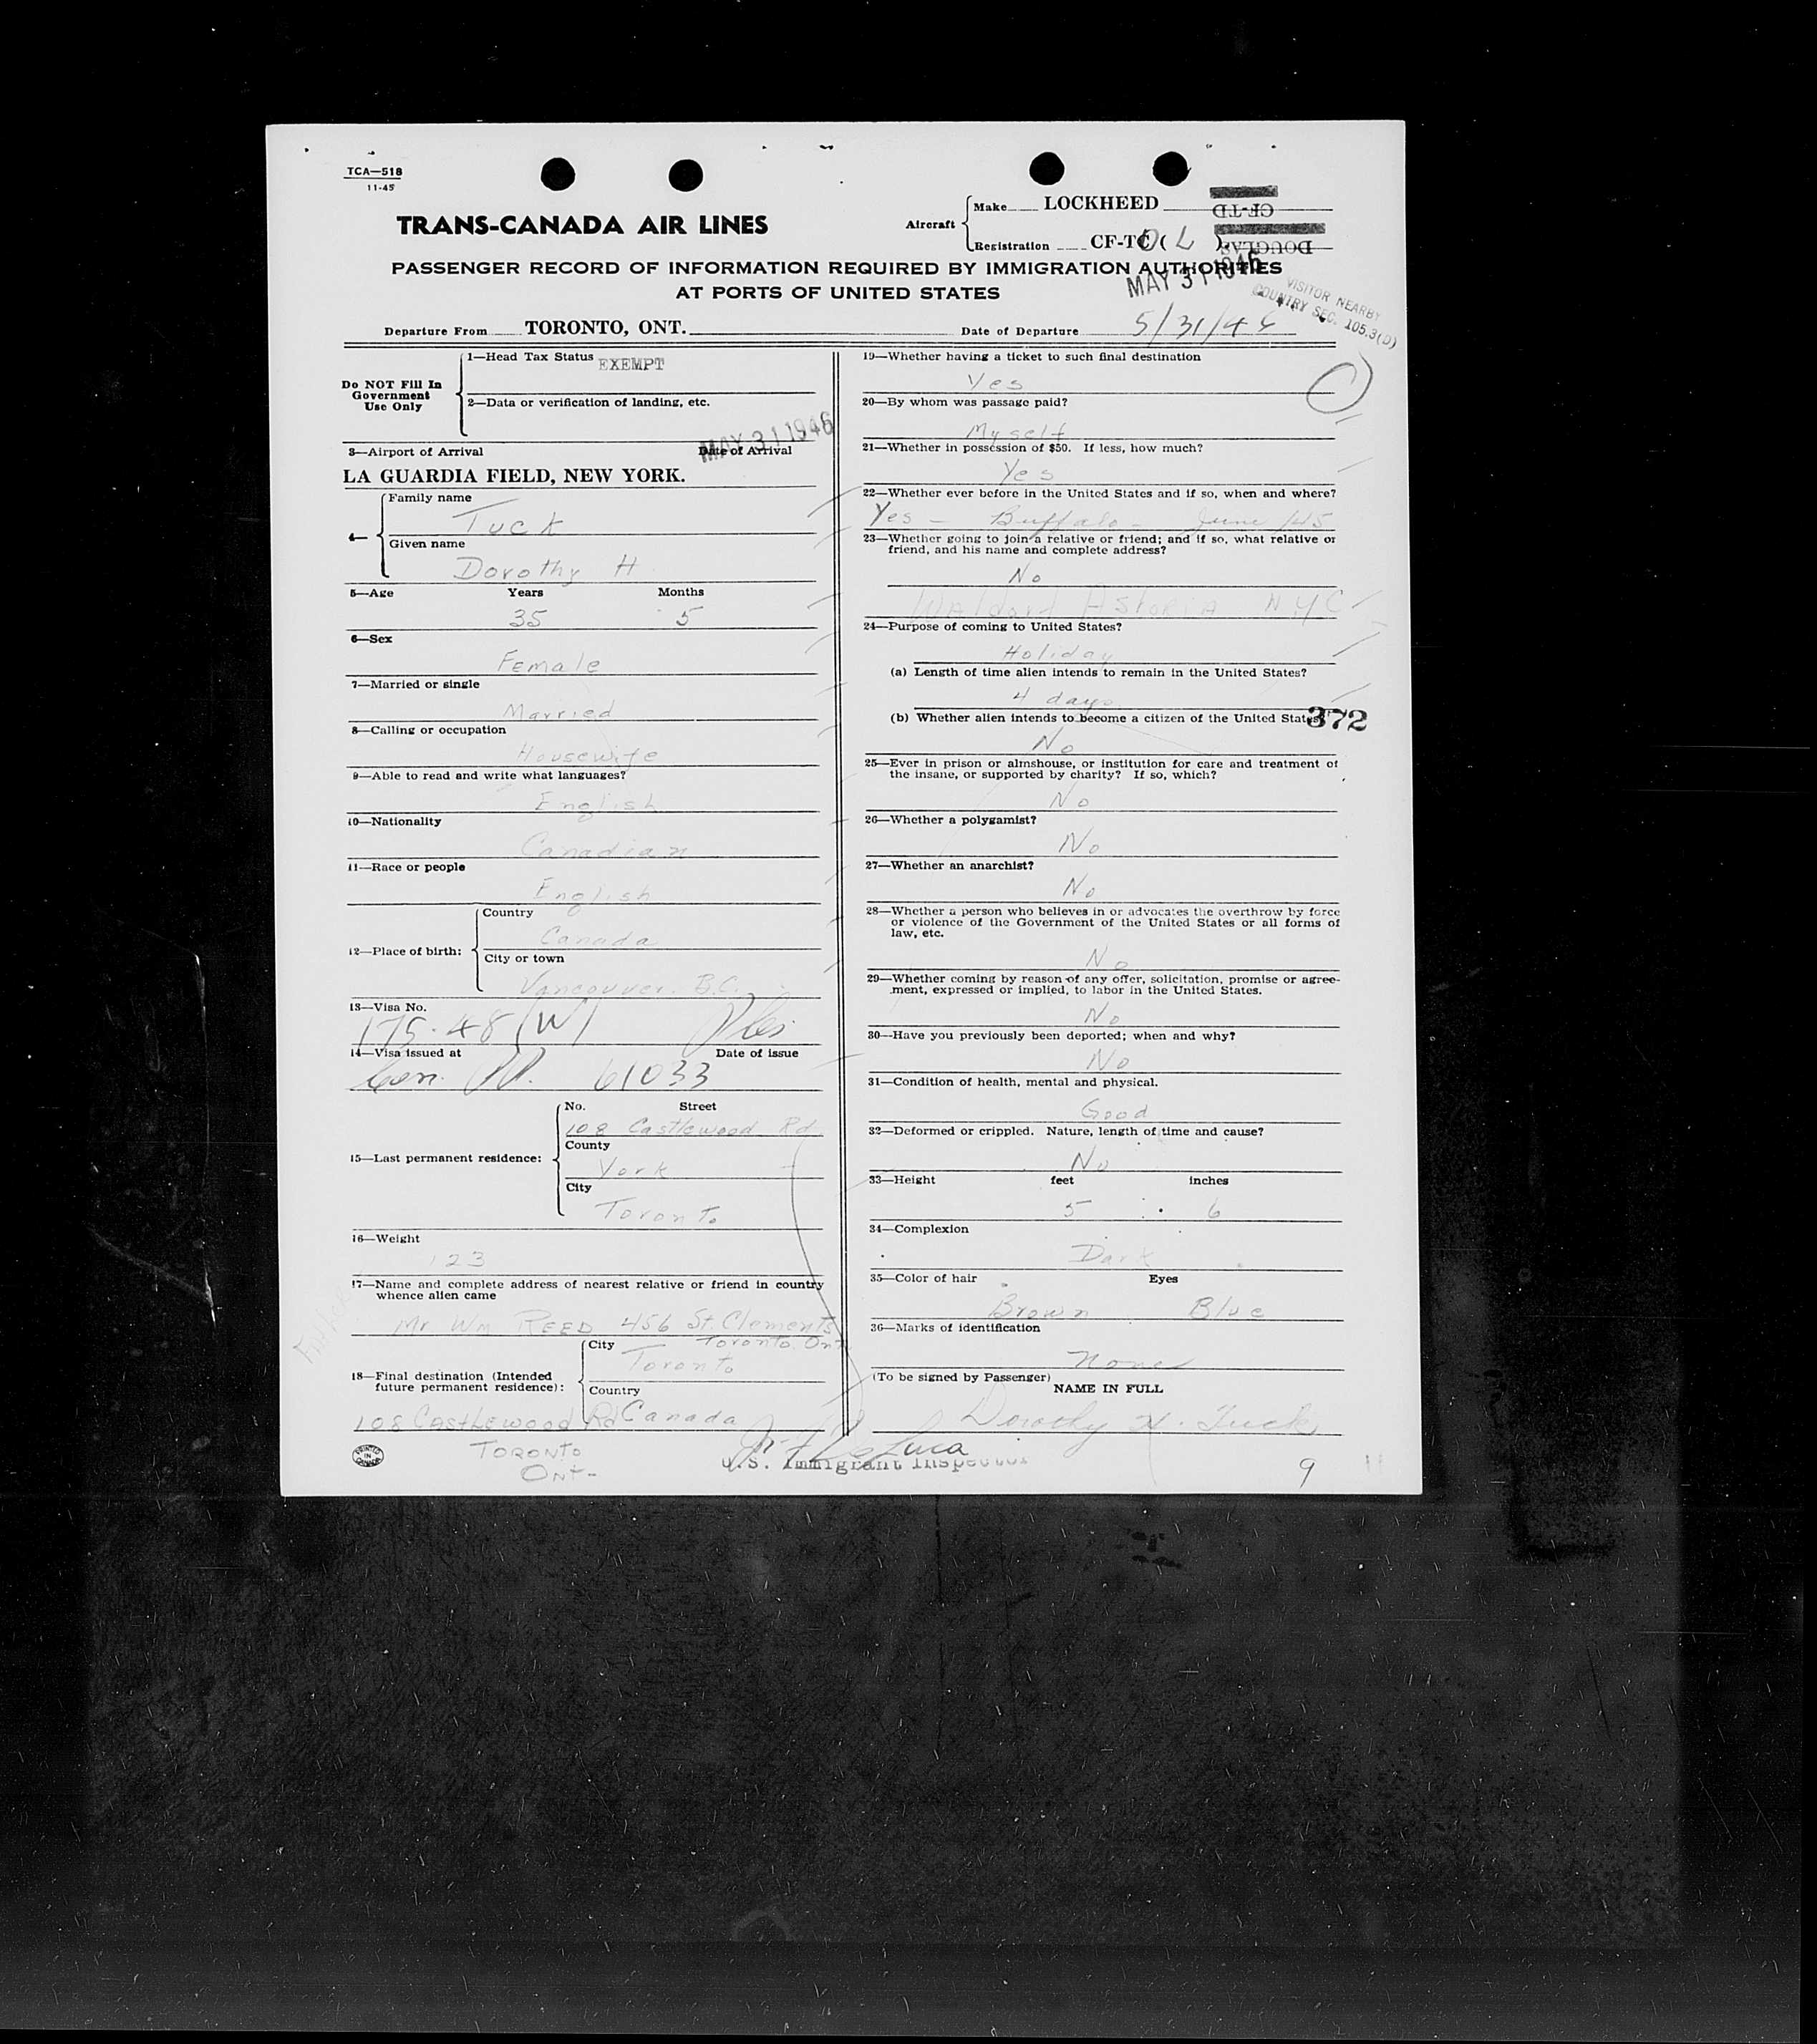 TCA—518
11-45
TRANS-CANADA AIR LINES
Aircraft
Make LOCKHEED
CF-TD
Registration CF-TC ( L )
DOUGLAS
PASSENGER RECORD OF INFORMATION REQUIRED BY IMMIGRATION AUTHORITIES
AT PORTS OF UNITED STATES
MAY 31 1946
VISITOR NEARBY
COUNTRY SEC. 105.3(D)
Departure From TORONTO, ONT. Date of Departure 5/31/46
Do NOT Fill In
Government
Use Only
1—Head Tax Status EXEMPT
2—Data or verification of landing, etc.
MAY 31 1946
3—Airport of Arrival Date of Arrival
LA GUARDIA FIELD, NEW YORK.
4—
Family name
Tuck
Given name
Dorothy H
5—Age Years Months
35 5
6—Sex
Female
7—Married or single
Married
8—Calling or occupation
Housewife
9—Able to read and write what languages?
English
10—Nationality
Canadian
11—Race or people
English
12—Place of birth:
Country
Canada
City or town
Vancouver. B.C.
13—Visa No.
175.48 (W)
14—Visa issued at Date of issue
61033
15—Last permanent residence:
No. Street
108 Castlewood Rd
County
York
City
Toronto
16—Weight
123
17—Name and complete address of nearest relative or friend in country
whence alien came
Father
Mr Wm REED 456 St. Clements
Toronto. Ont
18—Final destination (Intended
future permanent residence):
City
Toronto
Country
Canada
108 Castlewood Rd
TORONTO
Ont-
PRINTED
IN
CANADA
19—Whether having a ticket to such final destination
Yes
20—By whom was passage paid?
Myself
21—Whether in possession of $50. If less, how much?
Yes
22—Whether ever before in the United States and if so, when and where?
Yes - Buffalo - June /45
23—Whether going to join a relative or friend; and if so, what relative or
friend, and his name and complete address?
No
Waldorf Astoria N.Y.C
24—Purpose of coming to United States?
Holiday
(a) Length of time alien intends to remain in the United States?
4 days
(b) Whether alien intends to become a citizen of the United States?
372
No
25—Ever in prison or almshouse, or institution for care and treatment of
the insane, or supported by charity? If so, which?
No
26—Whether a polygamist?
No
27—Whether an anarchist?
No
28—Whether a person who believes in or advocates the overthrow by force
or violence of the Government of the United States or all forms of
law, etc.
No
29—Whether coming by reason of any offer, solicitation, promise or agree-
ment, expressed or implied, to labor in the United States.
No
30—Have you previously been deported; when and why?
No
31—Condition of health, mental and physical.
Good
32—Deformed or crippled. Nature, length of time and cause?
No
33—Height feet inches
5 6
34—Complexion
Dark
35—Color of hair Eyes
Brown Blue
36—Marks of identification
None
(To be signed by Passenger)
NAME IN FULL
Dorothy H. Tuck
De Luca
U.S. Immigrant Inspector
9